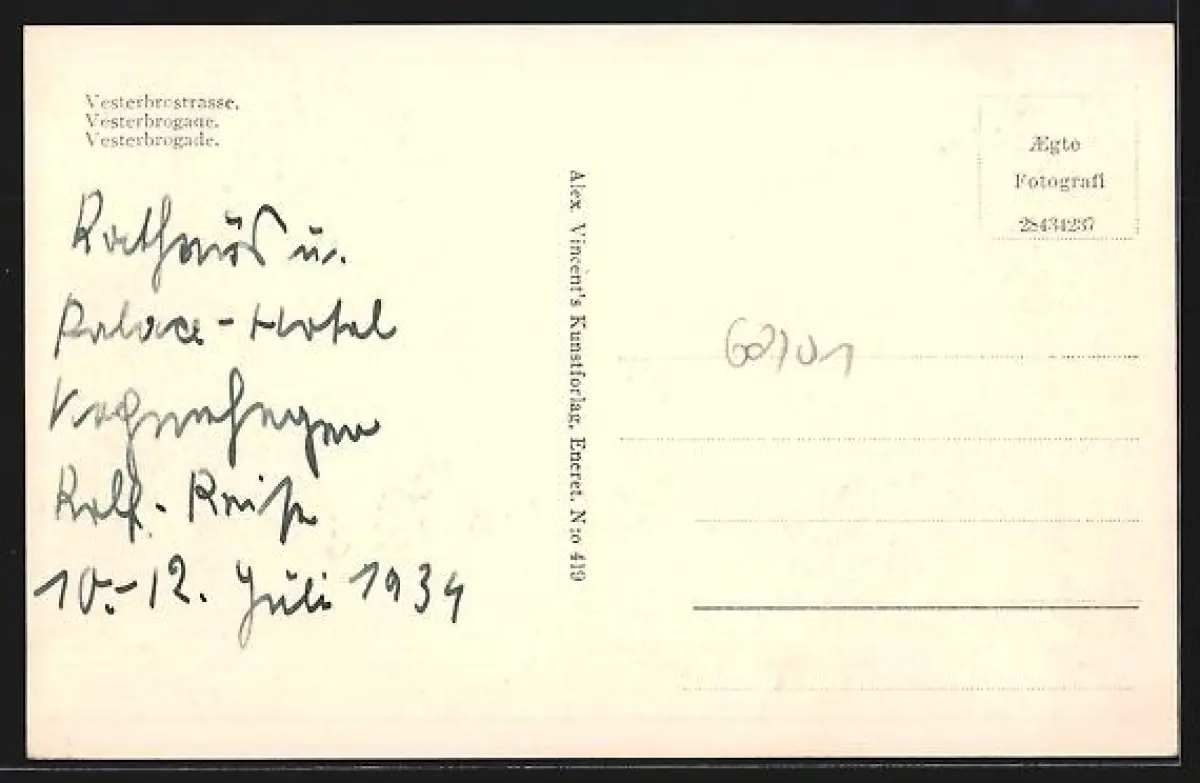 Vesterbrostrasse.
Vesterbrogade.
Vesterbrogade.
Rathaus u.
Palace-Hotel
Kopenhagen
Reise
10.-12. Juli 1934
Alex. Vincent's Kunstforlag, Eneret. N:o 419
Ægte
Fotografi
28434237